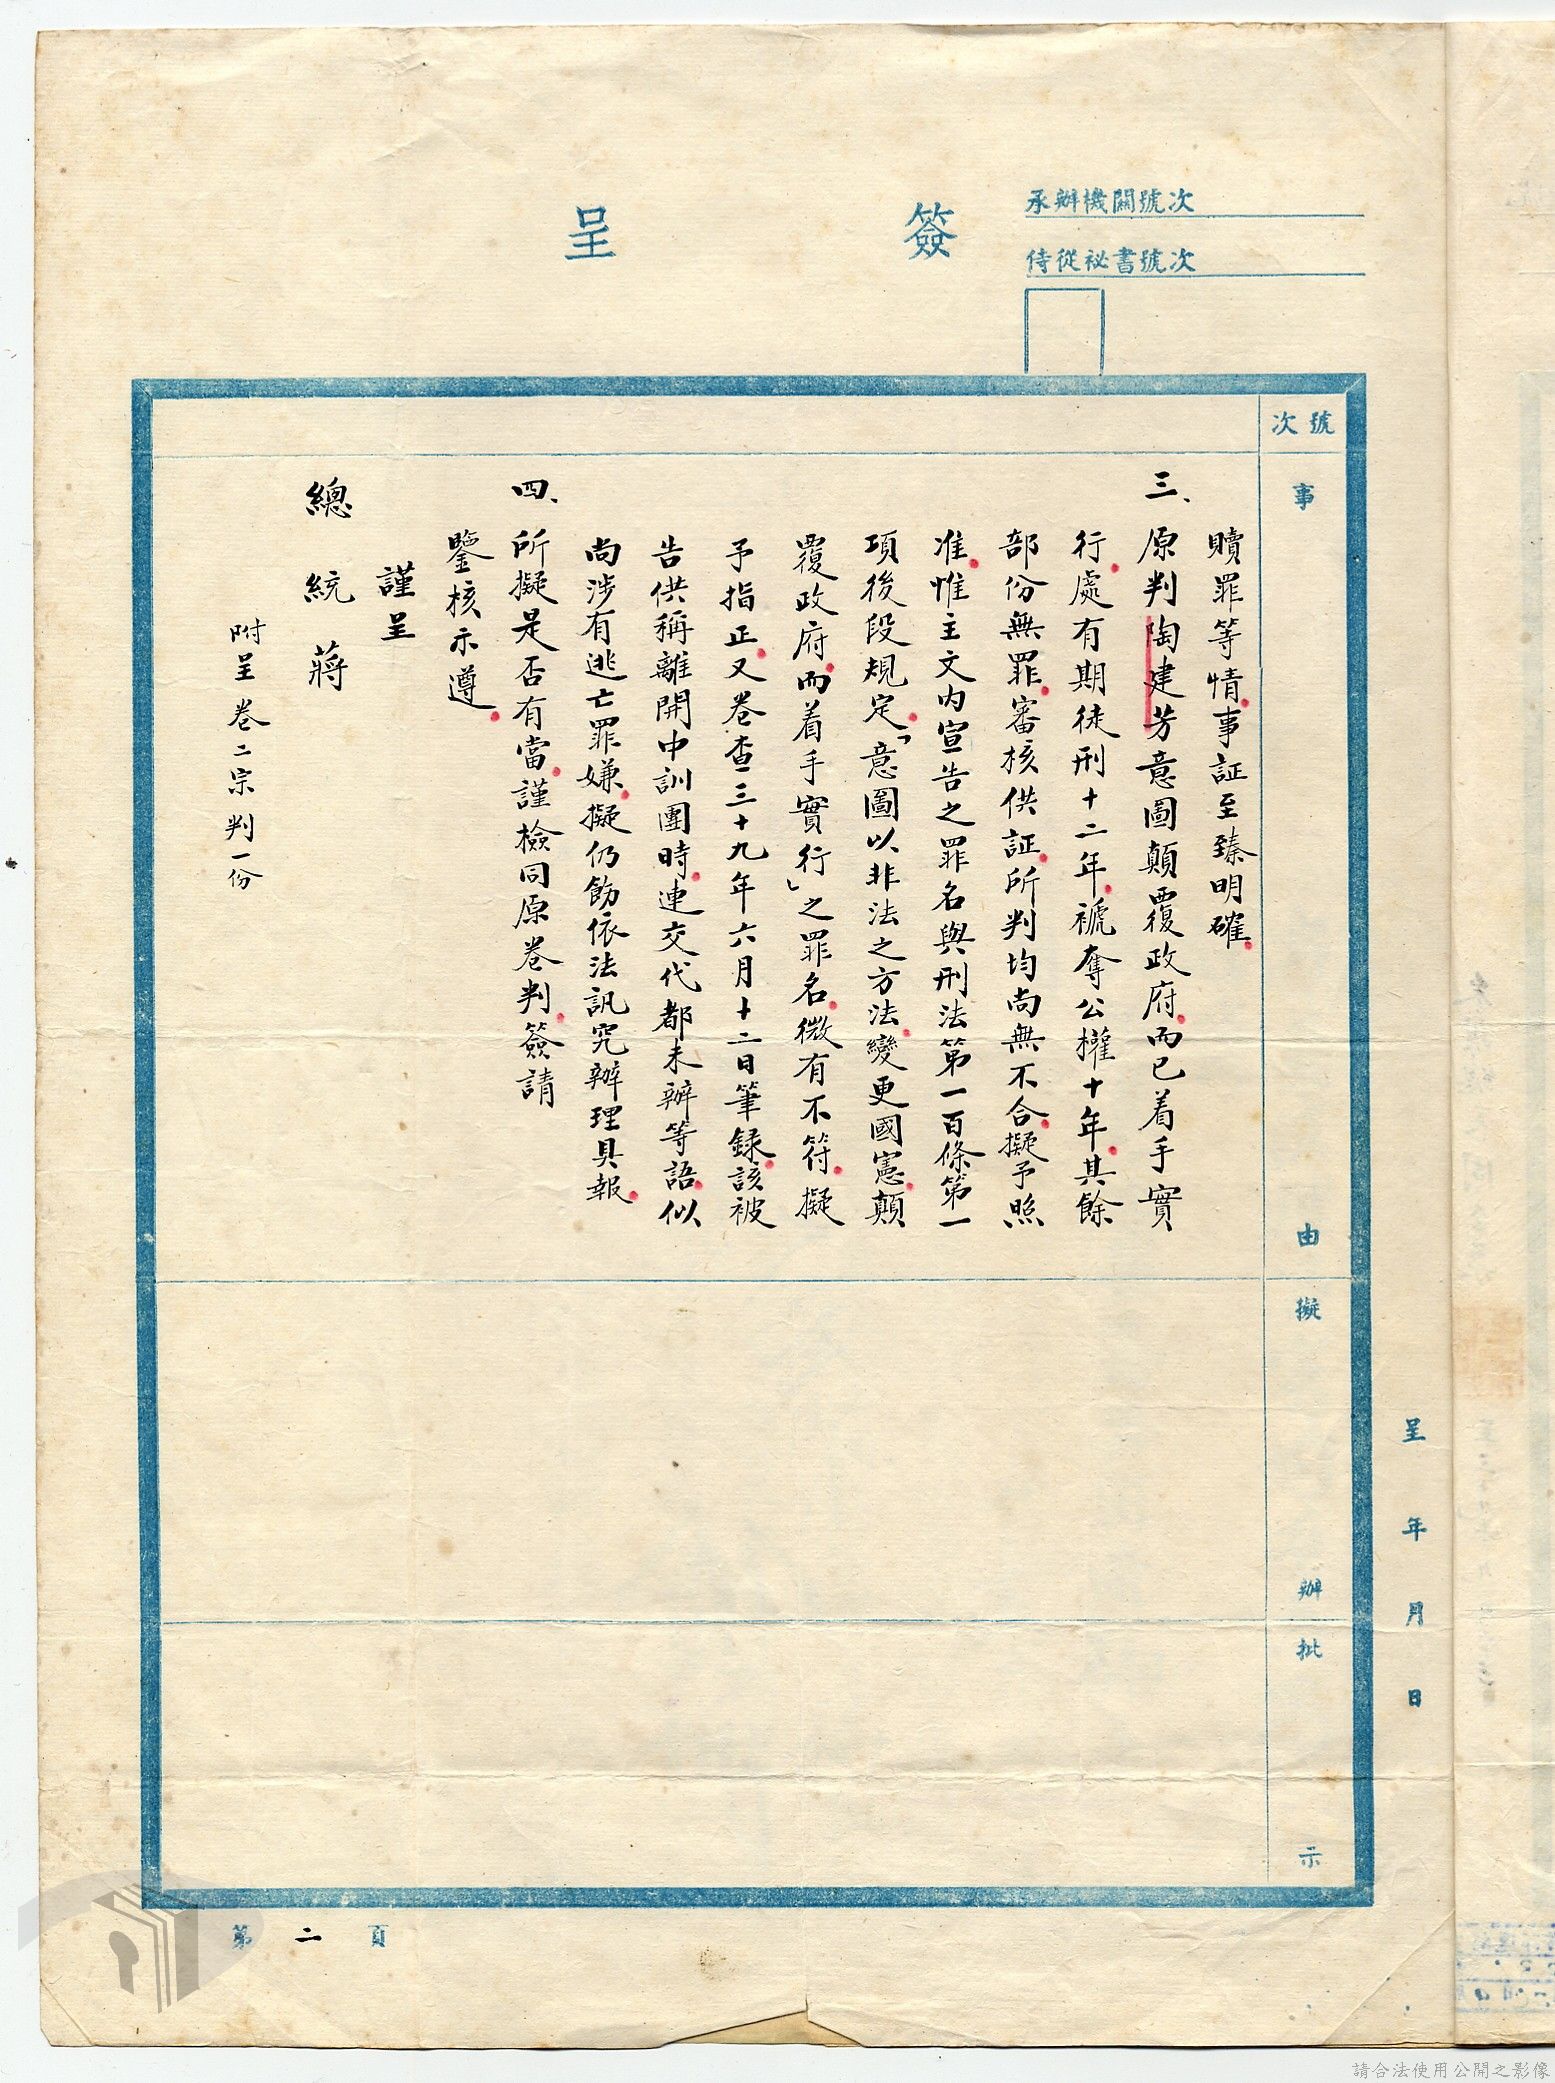 簽呈
承辦機關號次
侍從祕書號次
號次
事由
擬辦
批示
呈 年 月 日
贖罪等情事証至臻明確
三、原判陶建芳意圖顛覆政府而已着手實
行處有期徒刑十二年褫奪公權十年其餘
部份無罪審核供証所判均尚無不合擬予照
准惟主文內宣告之罪名與刑法第一百條第一
項後段規定「意圖以非法之方法變更國憲顛
覆政府而着手實行」之罪名微有不符擬
予指正又卷查三十九年六月十二日筆録該被
告供稱離開中訓團時連交代都未辦等語似
尚涉有逃亡罪嫌擬仍飭依法訊究辦理具報
四、所擬是否有當謹檢同原卷判簽請
鑒核示遵
謹呈
總統蔣
附呈卷二宗判一份
第二頁
請合法使用公開之影像